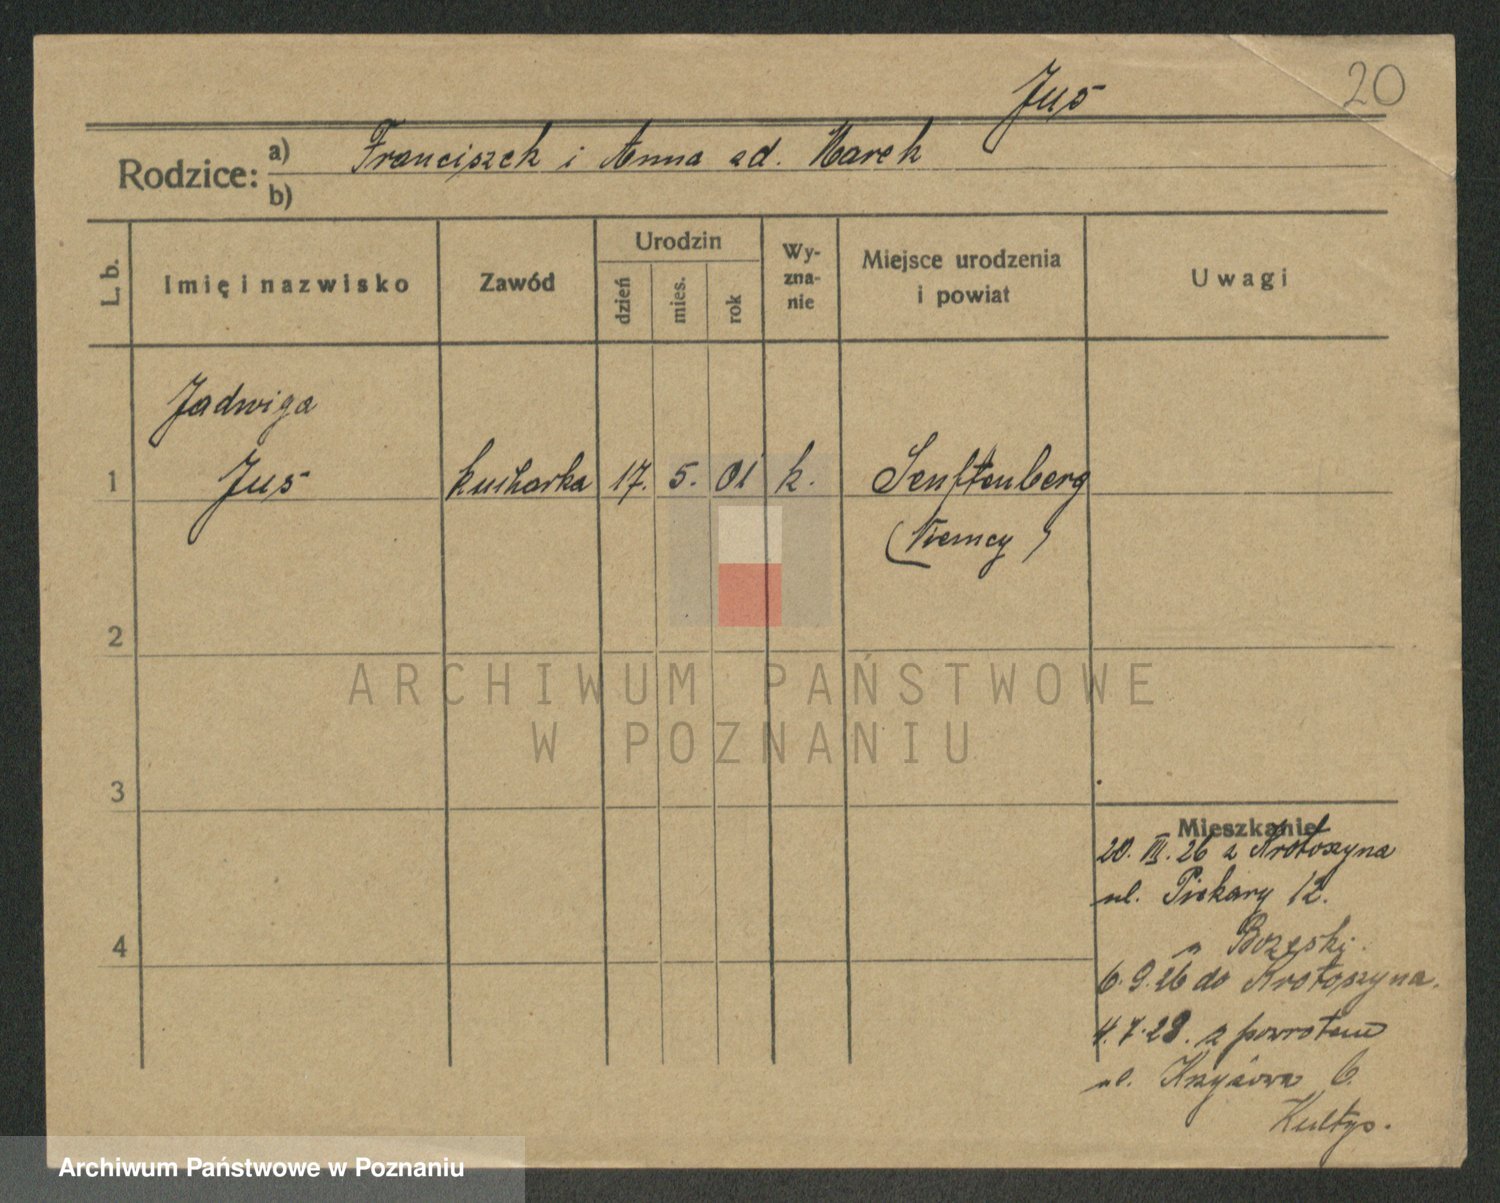 Jus
20
Rodzice: a) Franciszek i Anna zd. Marek
b)
L. b.
Imię i nazwisko
Zawód
Urodzin
dzień
mies.
rok
Wy-
zna-
nie
Miejsce urodzenia
i powiat
Uwagi
Jadwiga
1 Jus kucharka 17. 5. 01 k. Senftenberg
(Niemcy)
2
ARCHIWUM PAŃSTWOWE
W POZNANIU
3
Mieszkanie
20. III. 26 z Krotoszyna
ul. Piekary 12.
4
6.9.26 do Krotoszyna.
4.7.28. z powrotem
ul. 6.
Archiwum Państwowe w Poznaniu